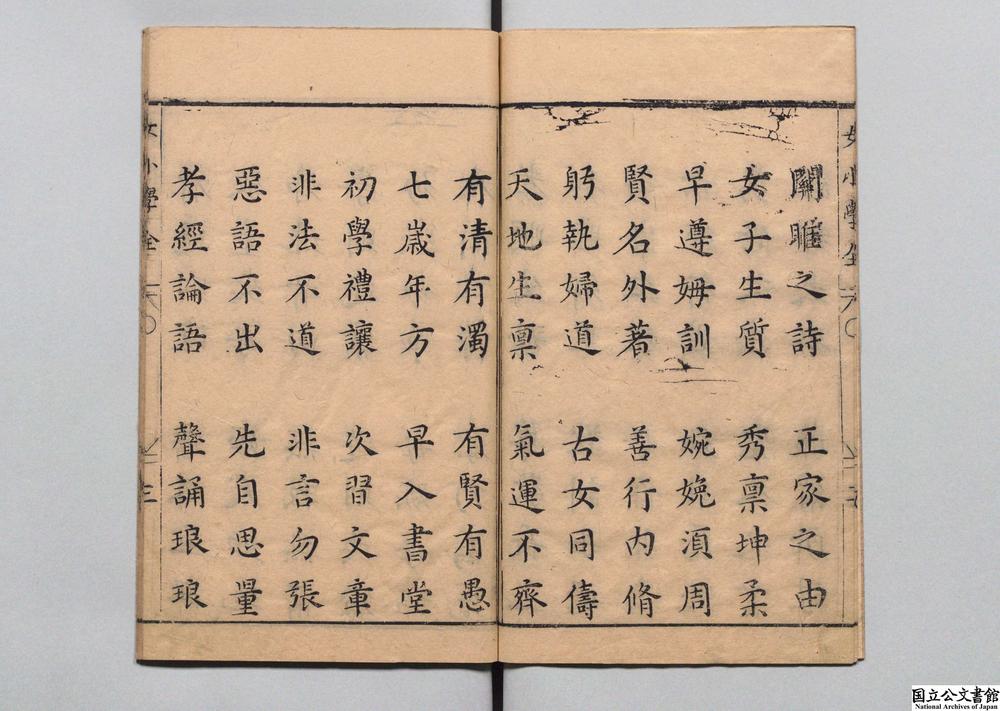 關雎之詩 正家之由
女子生質 秀禀坤柔
早遵姆訓 婉娩須周
賢名外著 善行内脩
躬執婦道 古女同儔
天地生禀 氣運不齊
有清有濁 有賢有愚
七歲年方 早入書堂
初學禮讓 次習文章
非法不道 非言勿張
惡語不出 先自思量
孝經論語 聲誦琅琅
女小學全
三
女小學全
国立公文書館
National Archives of Japan